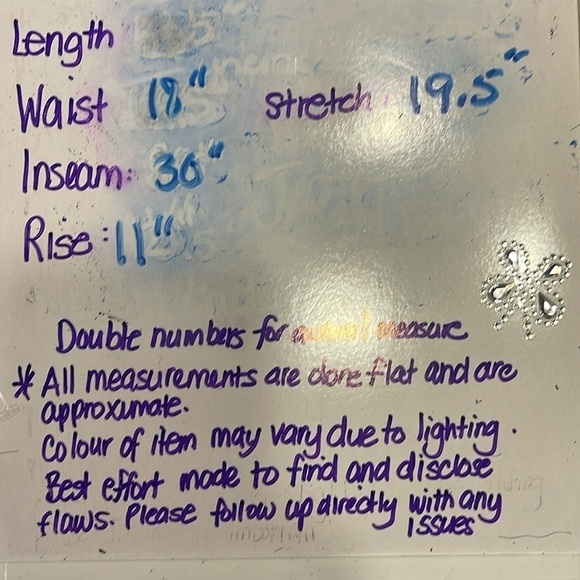 Length
Waist 18" stretch 19.5"
Inseam: 30"
Rise: 11"
Double numbers for measure
* All measurements are done flat and are
approximate.
Colour of item may vary due to lighting.
Best effort made to find and disclose
flaws. Please follow up directly with any
issues